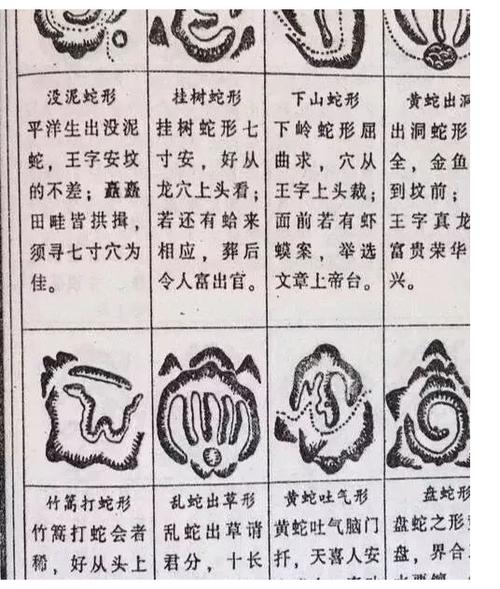 没泥蛇形
平洋生出没泥
蛇，王字安坟
的不差；矗矗
田畦皆拱揖，
须寻七寸穴为
佳。
挂树蛇形
挂树蛇形七
寸安，好从
龙穴上头看；
若还有蛤来
相应，葬后
令人富出官。
下山蛇形
下岭蛇形屈
曲求，穴从
王字上头裁；
面前若有虾
蟆案，举选
文章上帝台。
黄蛇出洞
出洞蛇形
全，金鱼
到坟前；
王字真龙
富贵荣华
兴。
竹篙打蛇形
竹篙打蛇会者
稀，好从头上
乱蛇出草形
乱蛇出草谓
君分，十长
黄蛇吐气形
黄蛇吐气脑门
扦，天喜人安
盘蛇形
盘蛇之形
盘，界合